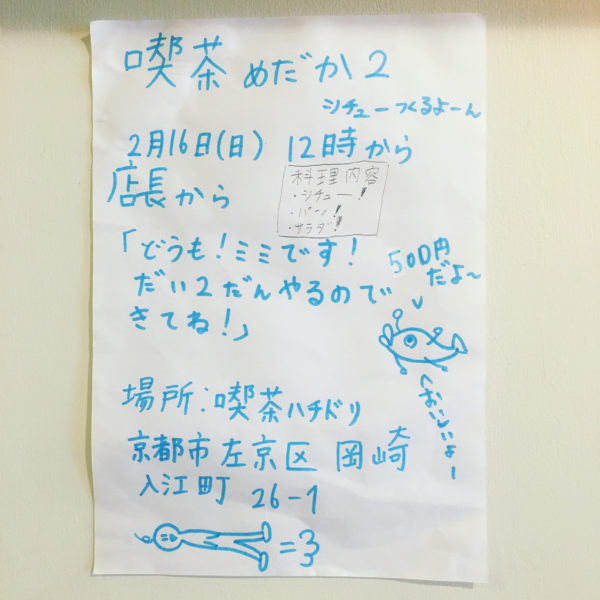 喫茶 めだか2
シチューつくるよーん
2月16日(日) 12時から
店長から
料理内容
・シチュー!
・パン!
・サラダ!
「どうも!ミミです!
だい2だんやるので
きてね!」
500円
だよ〜
へおいしいよー
場所:喫茶ハチドリ
京都市左京区 岡崎
入江町 26-1
=3